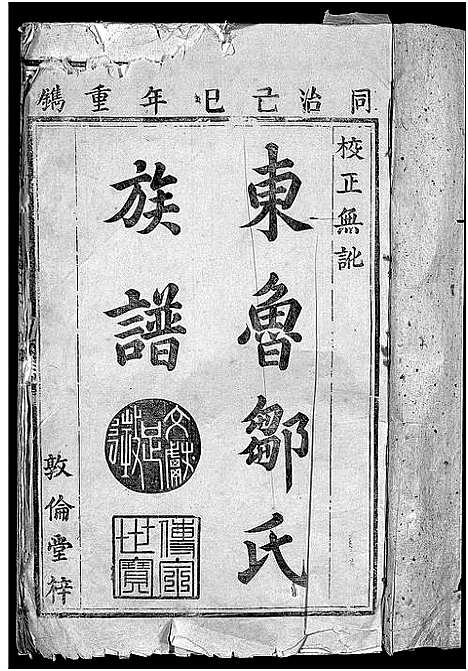 同治己巳年重鐫
校正無訛
東魯鄒氏
族譜
文獻足徵
傳家世寶
敦倫堂梓